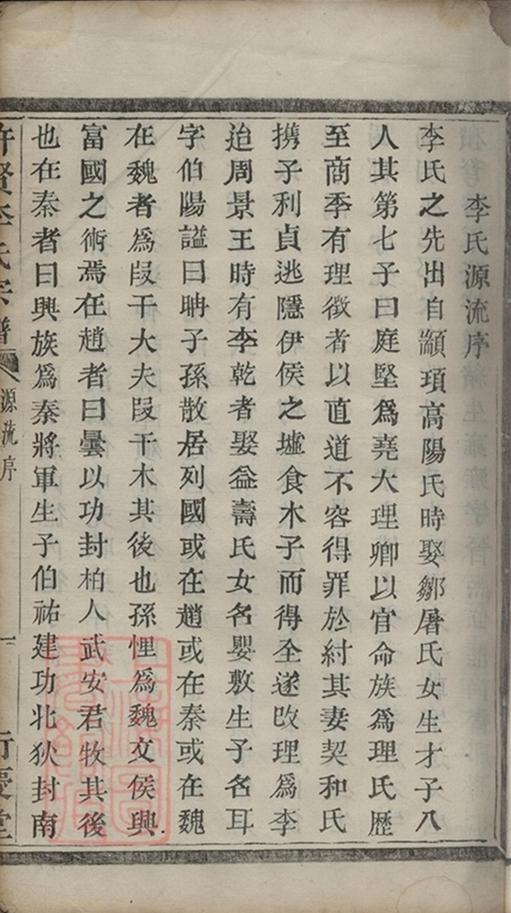 李氏源流序
李氏之先出自顓頊高陽氏時娶鄒屠氏女生才子八
人其第七子曰庭堅為堯大理卿以官命族為理氏歷
至商季有理徵者以直道不容得罪於紂其妻契和氏
携子利貞逃隱伊侯之墟食木子而得全遂改理為李
迨周景王時有李乾者娶益壽氏女名嬰敷生子名耳
字伯陽謚曰聃子孫散居列國或在趙或在秦或在魏
在魏者為段干大夫段干木其後也孫悝為魏文侯興
富國之術焉在趙者曰曇以功封柏人武安君牧其後
也在秦者曰興族為秦將軍生子伯祐建功北狄封南
許賢李氏宗譜
源流序
一
行慶堂